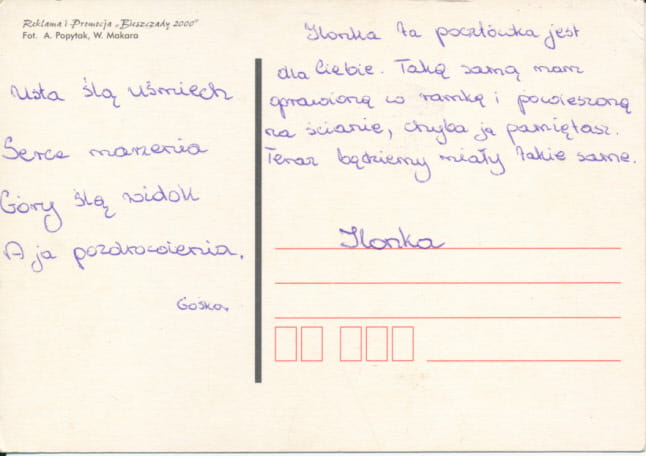 Reklama i Promocja „Bieszczady 2000"
Fot. A. Popytak, W. Makara
Usta ślą uśmiech
Serce marzenia
Góry ślą widok
A ja pozdrowienia.
Gośka.
Ilonka ta pocztówka jest
dla Ciebie. Taką samą mam
oprawioną w ramkę i powieszoną
na ścianie, chyba ją pamiętasz.
Teraz będziemy miały takie same.
Ilonka